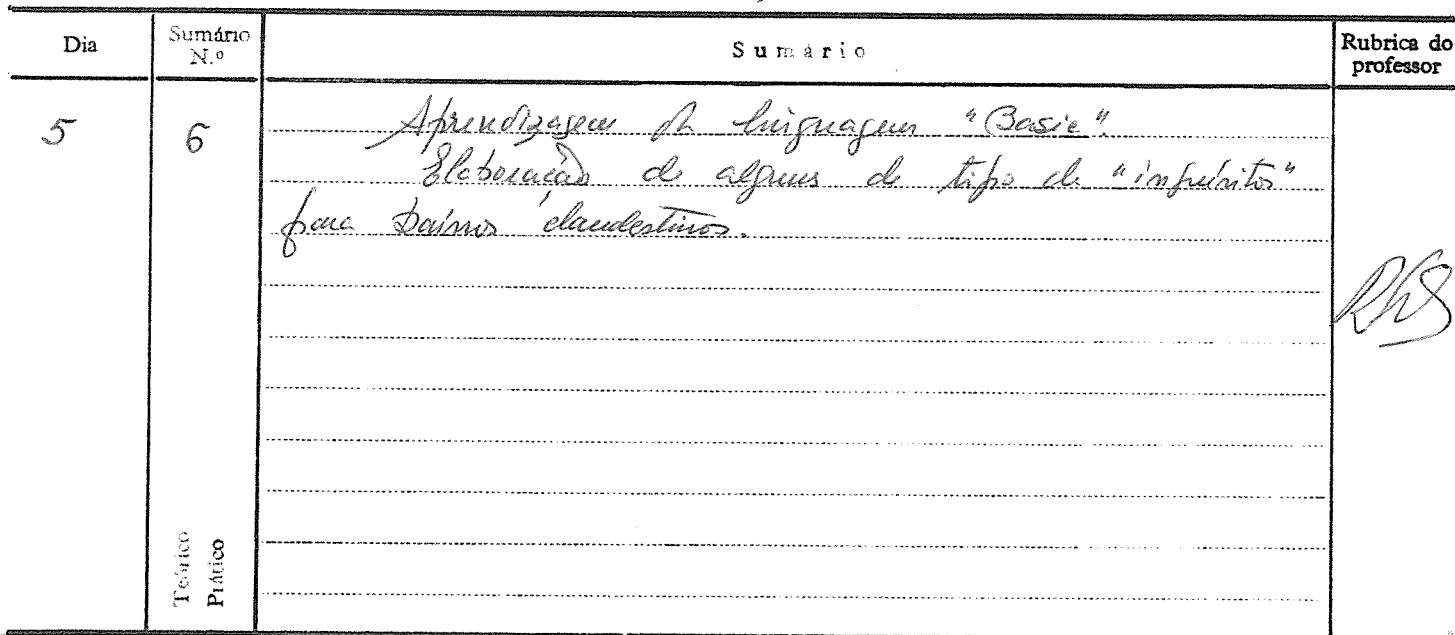 Dia
Sumário N.º
Sumário
Rubrica do professor
5
6
Aprendizagem da linguagem "Basic".
Elaboração de alguns de tipo de "inquéritos"
para bairros clandestinos.
Teórico
Prático